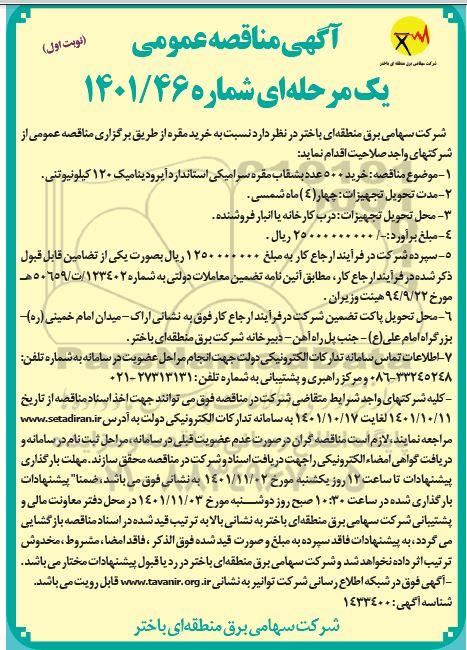 آگهی مناقصه عمومی
(نوبت اول)
شرکت سهامی برق منطقه ای باختر
یک مرحله‌ای شماره ۱۴۰۱/۴۶
شرکت سهامی برق منطقه‌ای باختر در نظر دارد نسبت به خرید مقره از طریق برگزاری مناقصه عمومی از
شرکتهای واجد صلاحیت اقدام نماید:
۱- موضوع مناقصه: خرید ۵۰۰ عدد بشقاب مقره سرامیکی استاندارد آیرودینامیک ۱۲۰ کیلونیوتنی.
۲- مدت تحویل تجهیزات: چهار (۴) ماه شمسی.
۳- محل تحویل تجهیزات: درب کارخانه یا انبار فروشنده.
۴- مبلغ برآورد: -/۲۵۰۰۰۰۰۰۰۰۰ ریال.
۵- سپرده شرکت در فرآیند ارجاع کار به مبلغ ۱۲۵۰۰۰۰۰۰۰ ریال بصورت یکی از تضامین قابل قبول
ذکر شده در فرآیند ارجاع کار، مطابق آئین نامه تضمین معاملات دولتی به شماره ۱۲۳۴۰۲/ت۵۰۶۵۹هـ
مورخ ۹۴/۹/۲۲ هیئت وزیران.
۶- محل تحویل پاکت تضمین شرکت در فرآیند ارجاع کار فوق به نشانی اراک - میدان امام خمینی (ره)-
بزرگراه امام علی(ع) - جنب پل راه آهن - دبیرخانه شرکت برق منطقه‌ای باختر.
۷- اطلاعات تماس سامانه تدارکات الکترونیکی دولت جهت انجام مراحل عضویت در سامانه به شماره تلفن:
۰۸۶-۳۳۲۴۵۲۴۸ و مرکز راهبری و پشتیبانی به شماره تلفن: ۰۲۱-۲۷۳۱۳۱۳۱
-کلیه شرکتهای واجد شرایط متقاضی شرکت در مناقصه فوق می توانند جهت اخذ اسناد مناقصه از تاریخ
۱۴۰۱/۱۰/۱۱ لغایت ۱۴۰۱/۱۰/۱۷ به سامانه تدارکات الکترونیکی دولت به آدرس www.setadiran.ir
مراجعه نمایند، لازم است مناقصه گران در صورت عدم عضویت قبلی در سامانه، مراحل ثبت نام در سامانه و
دریافت گواهی امضاء الکترونیکی را جهت دریافت اسناد و شرکت در مناقصه محقق سازند. مهلت بارگذاری
پیشنهادات تا ساعت ۱۲ روز یکشنبه مورخ ۱۴۰۱/۱۱/۰۲ به نشانی فوق می‌باشد، ضمنا" پیشنهادات
بارگذاری شده در ساعت ۱۰:۳۰ صبح روز دوشنبه مورخ ۱۴۰۱/۱۱/۰۳ در محل دفتر معاونت مالی و
پشتیبانی شرکت سهامی برق منطقه‌ای باختر به نشانی بالا به ترتیب قید شده در اسناد مناقصه بازگشایی
می گردد، به پیشنهادات فاقد سپرده به مبلغ و صورت قید شده فوق الذکر، فاقد امضا، مشروط، مخدوش
ترتیب اثر داده نخواهد شد و شرکت سهامی برق منطقه‌ای باختر در رد یا قبول پیشنهادات مختار می باشد.
-آگهی فوق در شبکه اطلاع رسانی شرکت توانیر به نشانی www.tavanir.org.ir قابل رویت می باشد.
شناسه آگهی: ۱۴۳۳۴۰۰
شرکت سهامی برق منطقه‌ای باختر